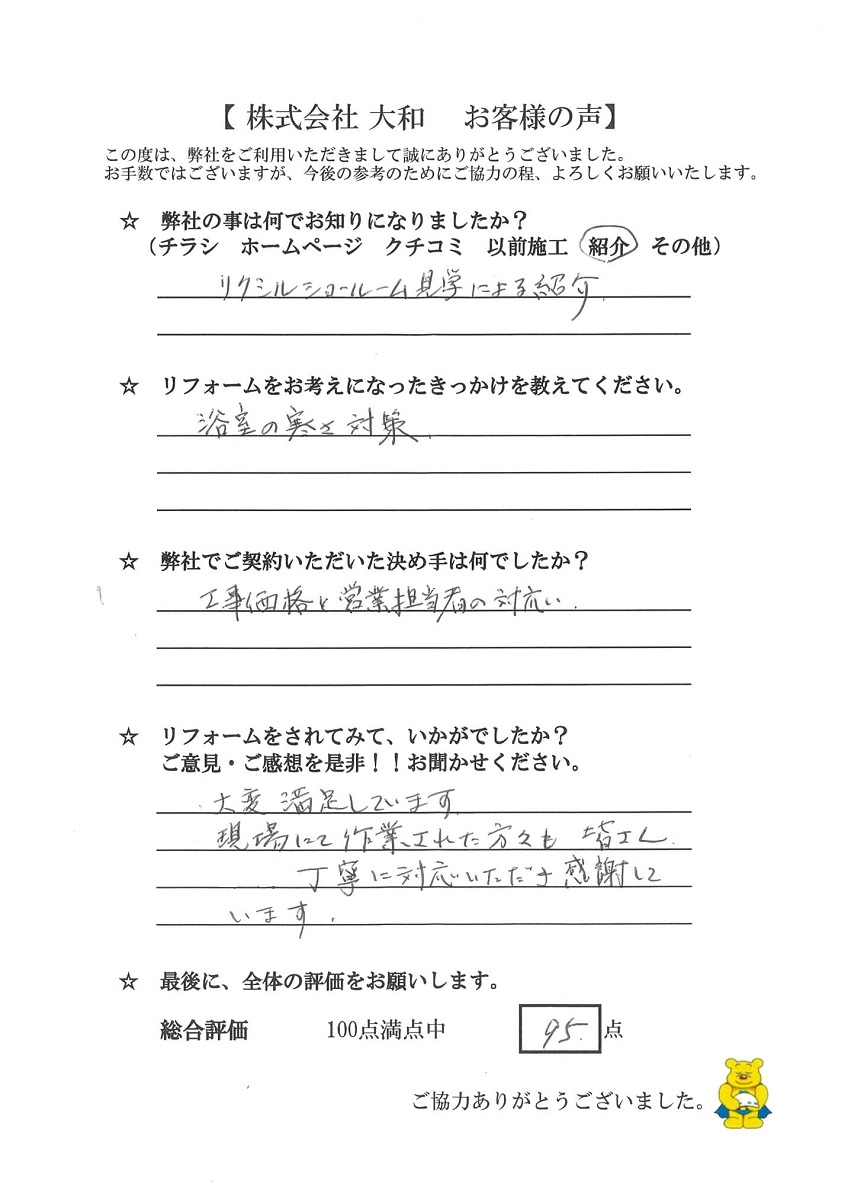 【 株式会社 大和　お客様の声】
この度は、弊社をご利用いただきまして誠にありがとうございました。
お手数ではございますが、今後の参考のためにご協力の程、よろしくお願いいたします。
☆　弊社の事は何でお知りになりましたか？
（チラシ　ホームページ　クチコミ　以前施工　紹介　その他）
リクシルショールーム見学による紹介.
☆　リフォームをお考えになったきっかけを教えてください。
浴室の寒さ対策.
☆　弊社でご契約いただいた決め手は何でしたか？
工事価格と営業担当者の対応い.
☆　リフォームをされてみて、いかがでしたか？
ご意見・ご感想を是非！！お聞かせください。
大変満足しています.
現場にて作業された方々も 皆さん.
丁寧に対応いただき感謝して
います.
☆　最後に、全体の評価をお願いします。
総合評価　100点満点中　95.　点
ご協力ありがとうございました。